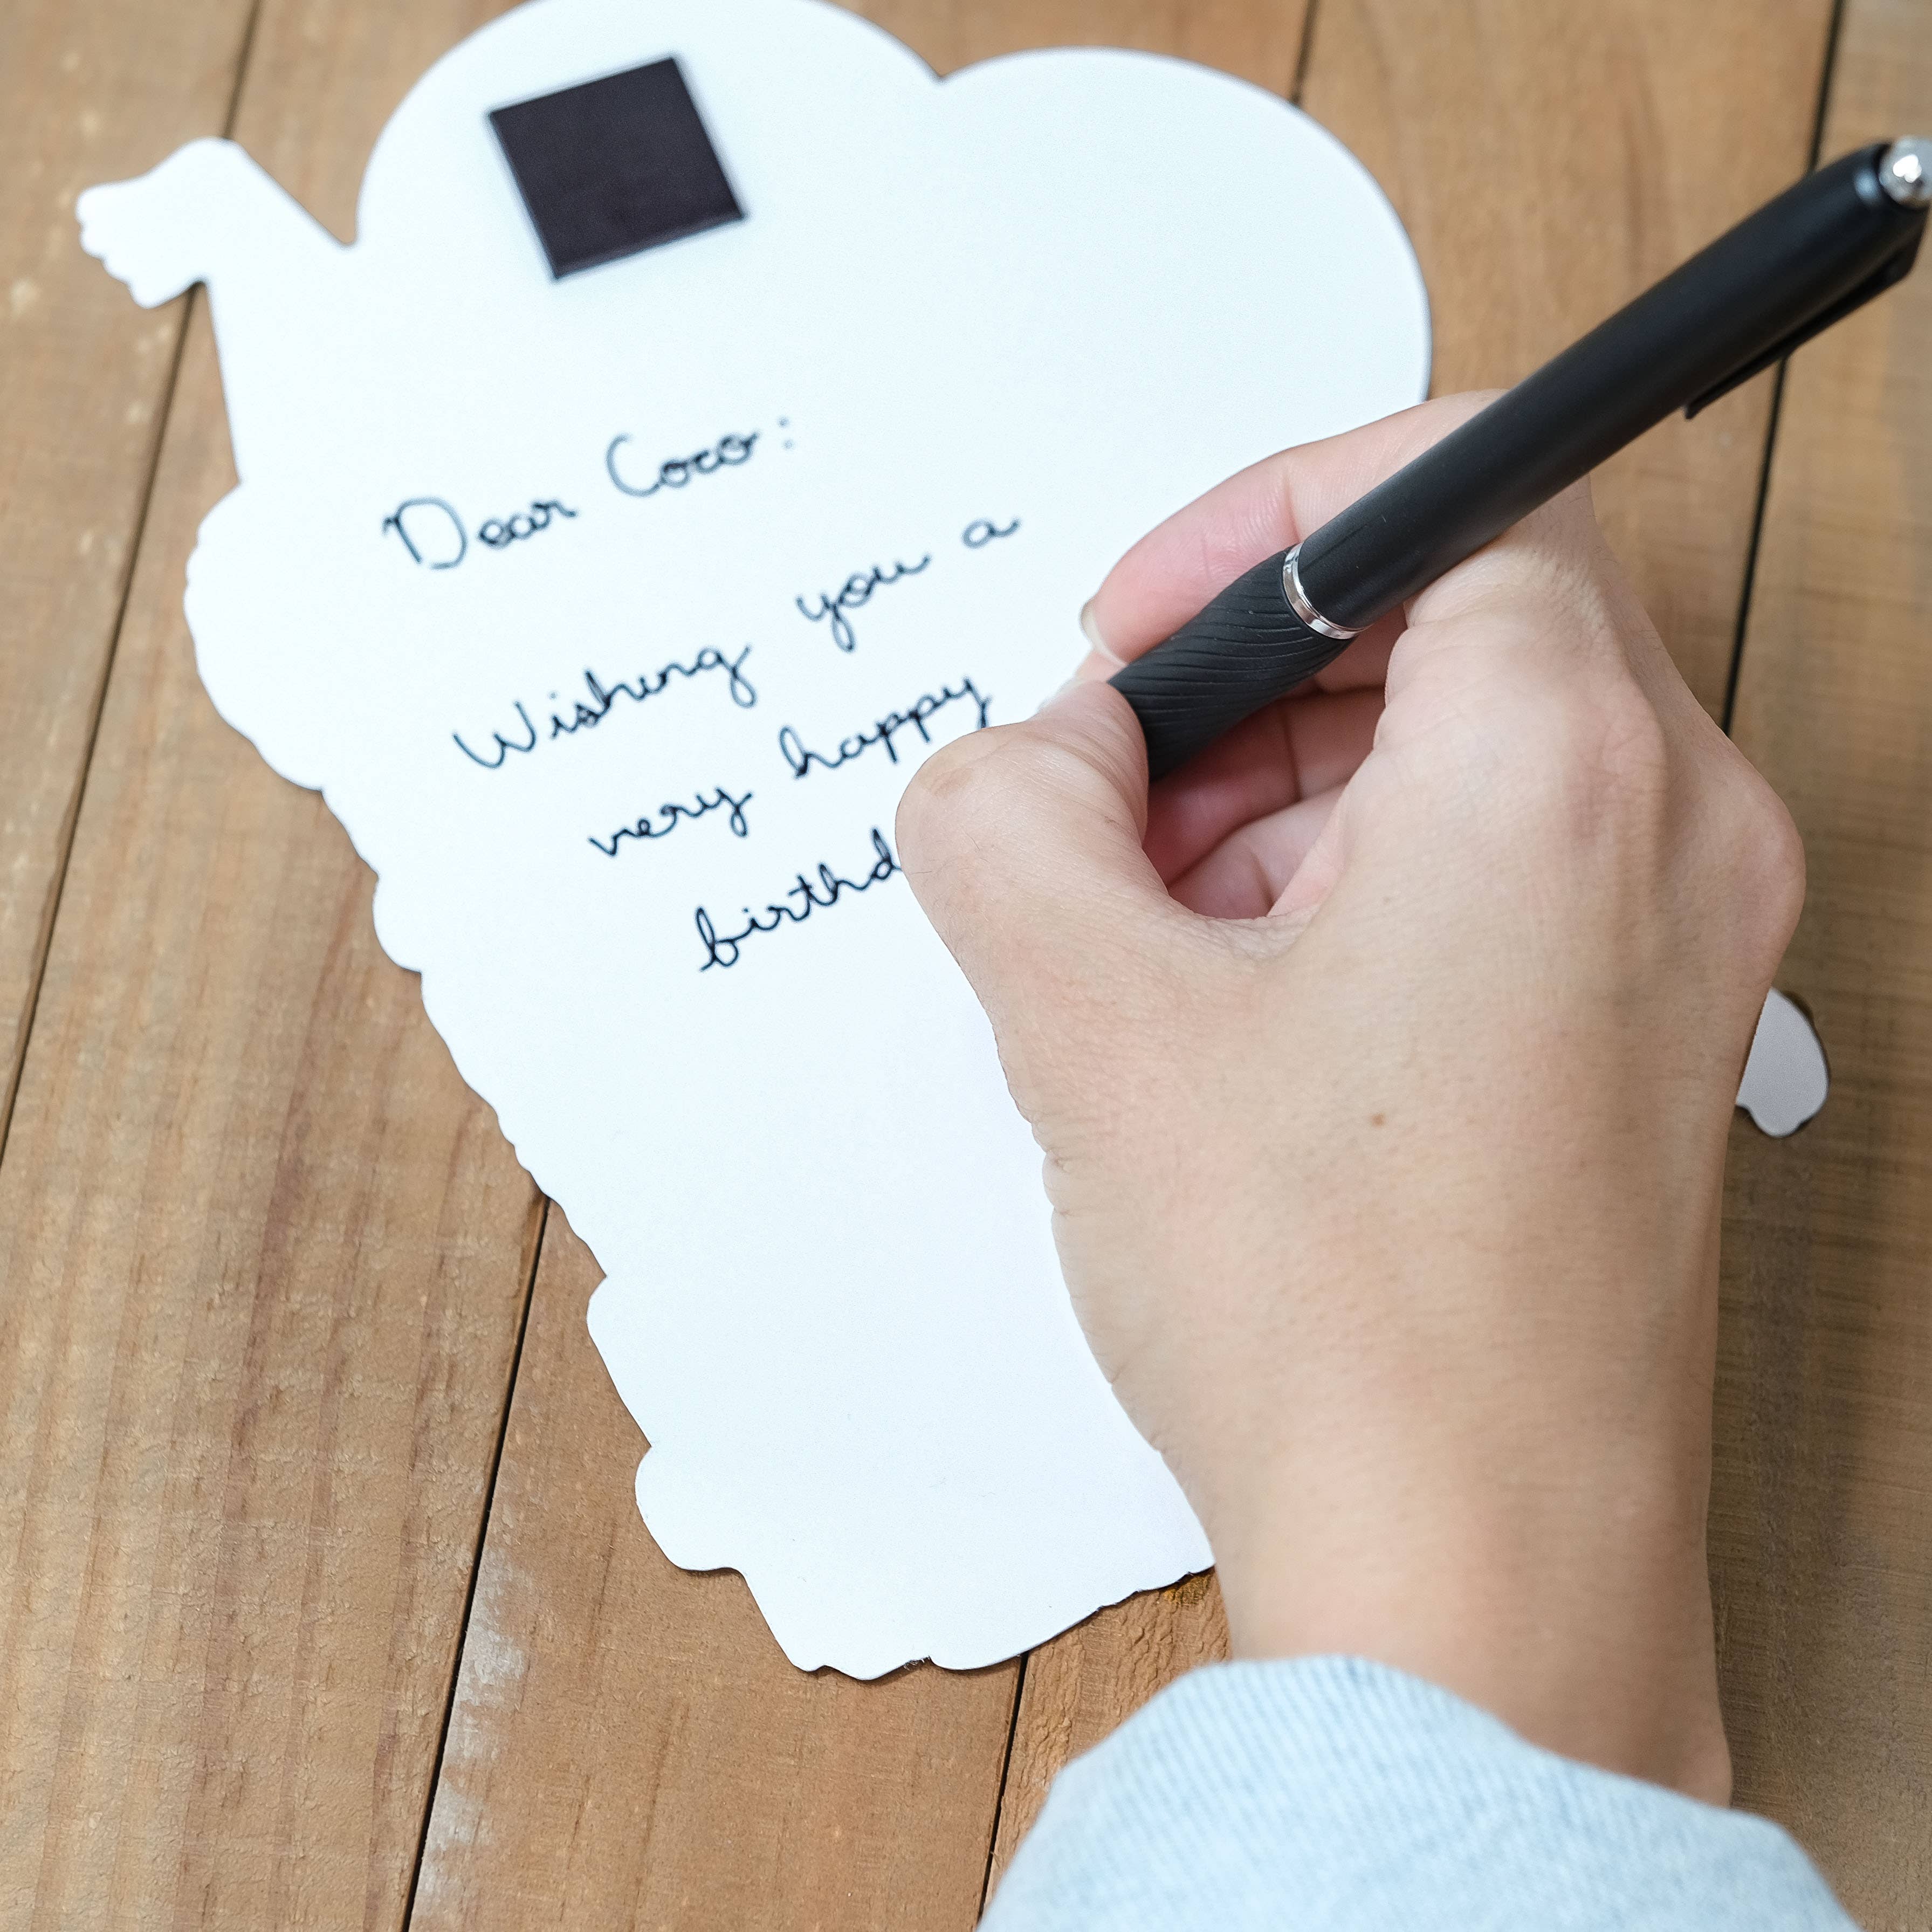 Dear Coco:
Wishing you a
very happy
birthd